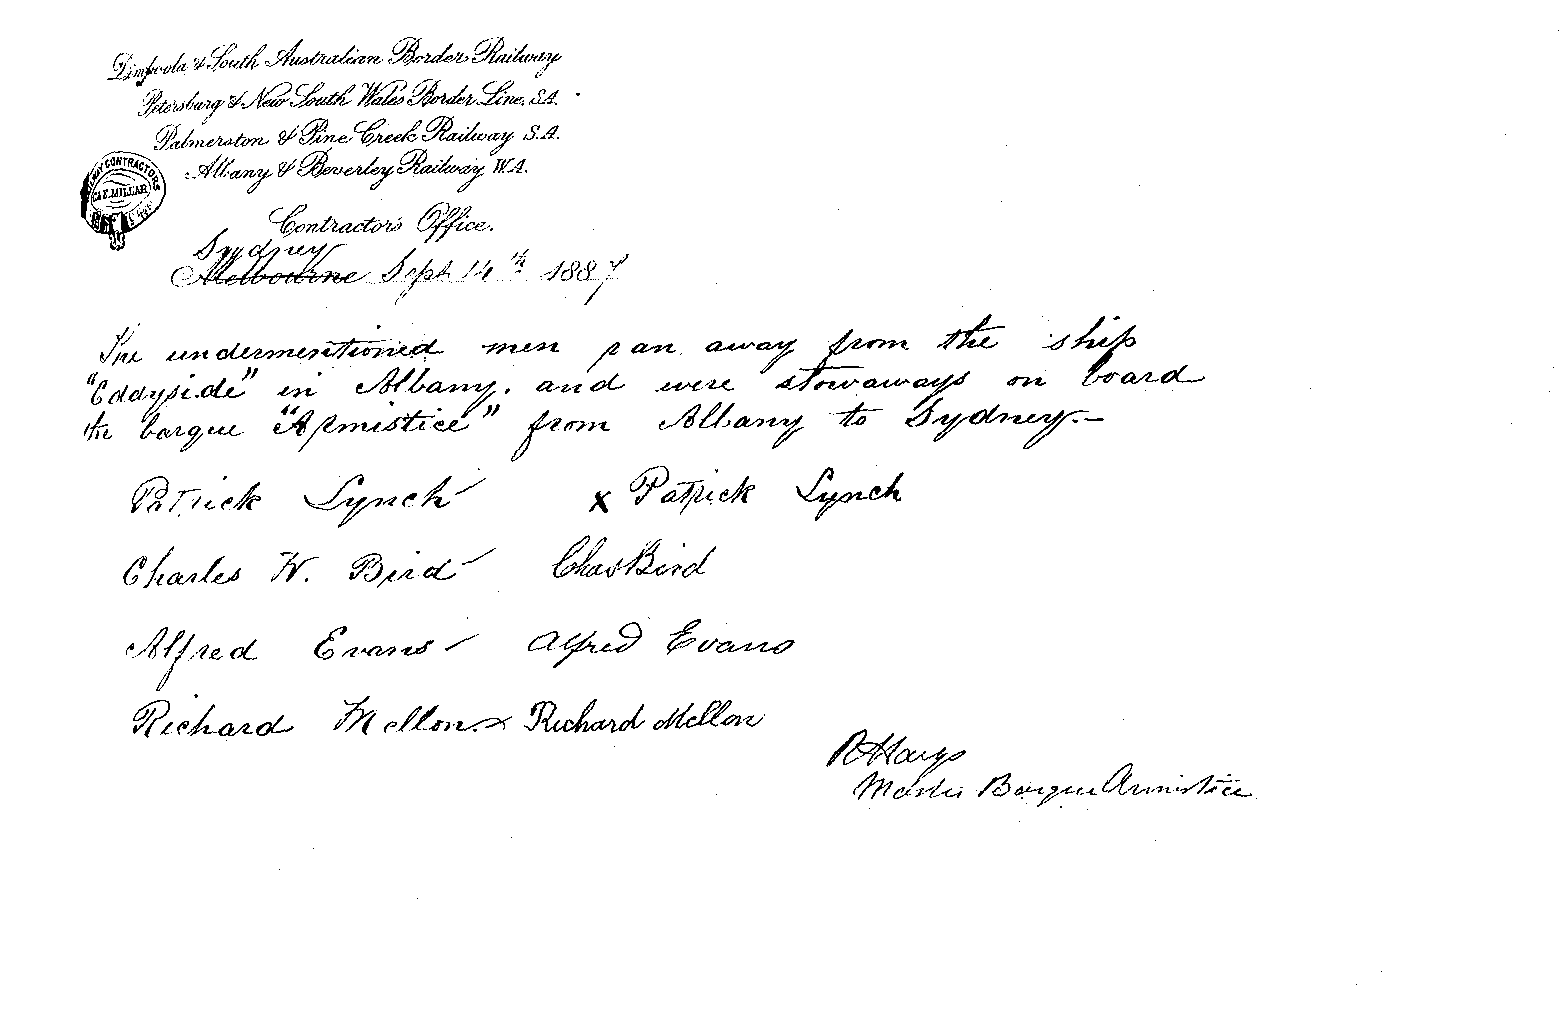 Dimboola & South Australian Border Railway
Petersburg & New South Wales Border Line, S.A.
Palmerston & Pine Creek Railway S.A.
Albany & Beverley Railway W.A.
RAILWAY CONTRACTORS
C & E. MILLAR
Contractor's Office.
Sydney
Melbourne Sept 14th 1887
The undermentioned men ran away from the ship
"Eddyside" in Albany. and were stowaways on board
the barque "Armistice" from Albany to Sydney.—
Patrick Lynch x Patrick Lynch
Charles W. Bird Chas Bird
Alfred Evans Alfred Evans
Richard Mellon x Richard Mellon
Master Barque Armistice